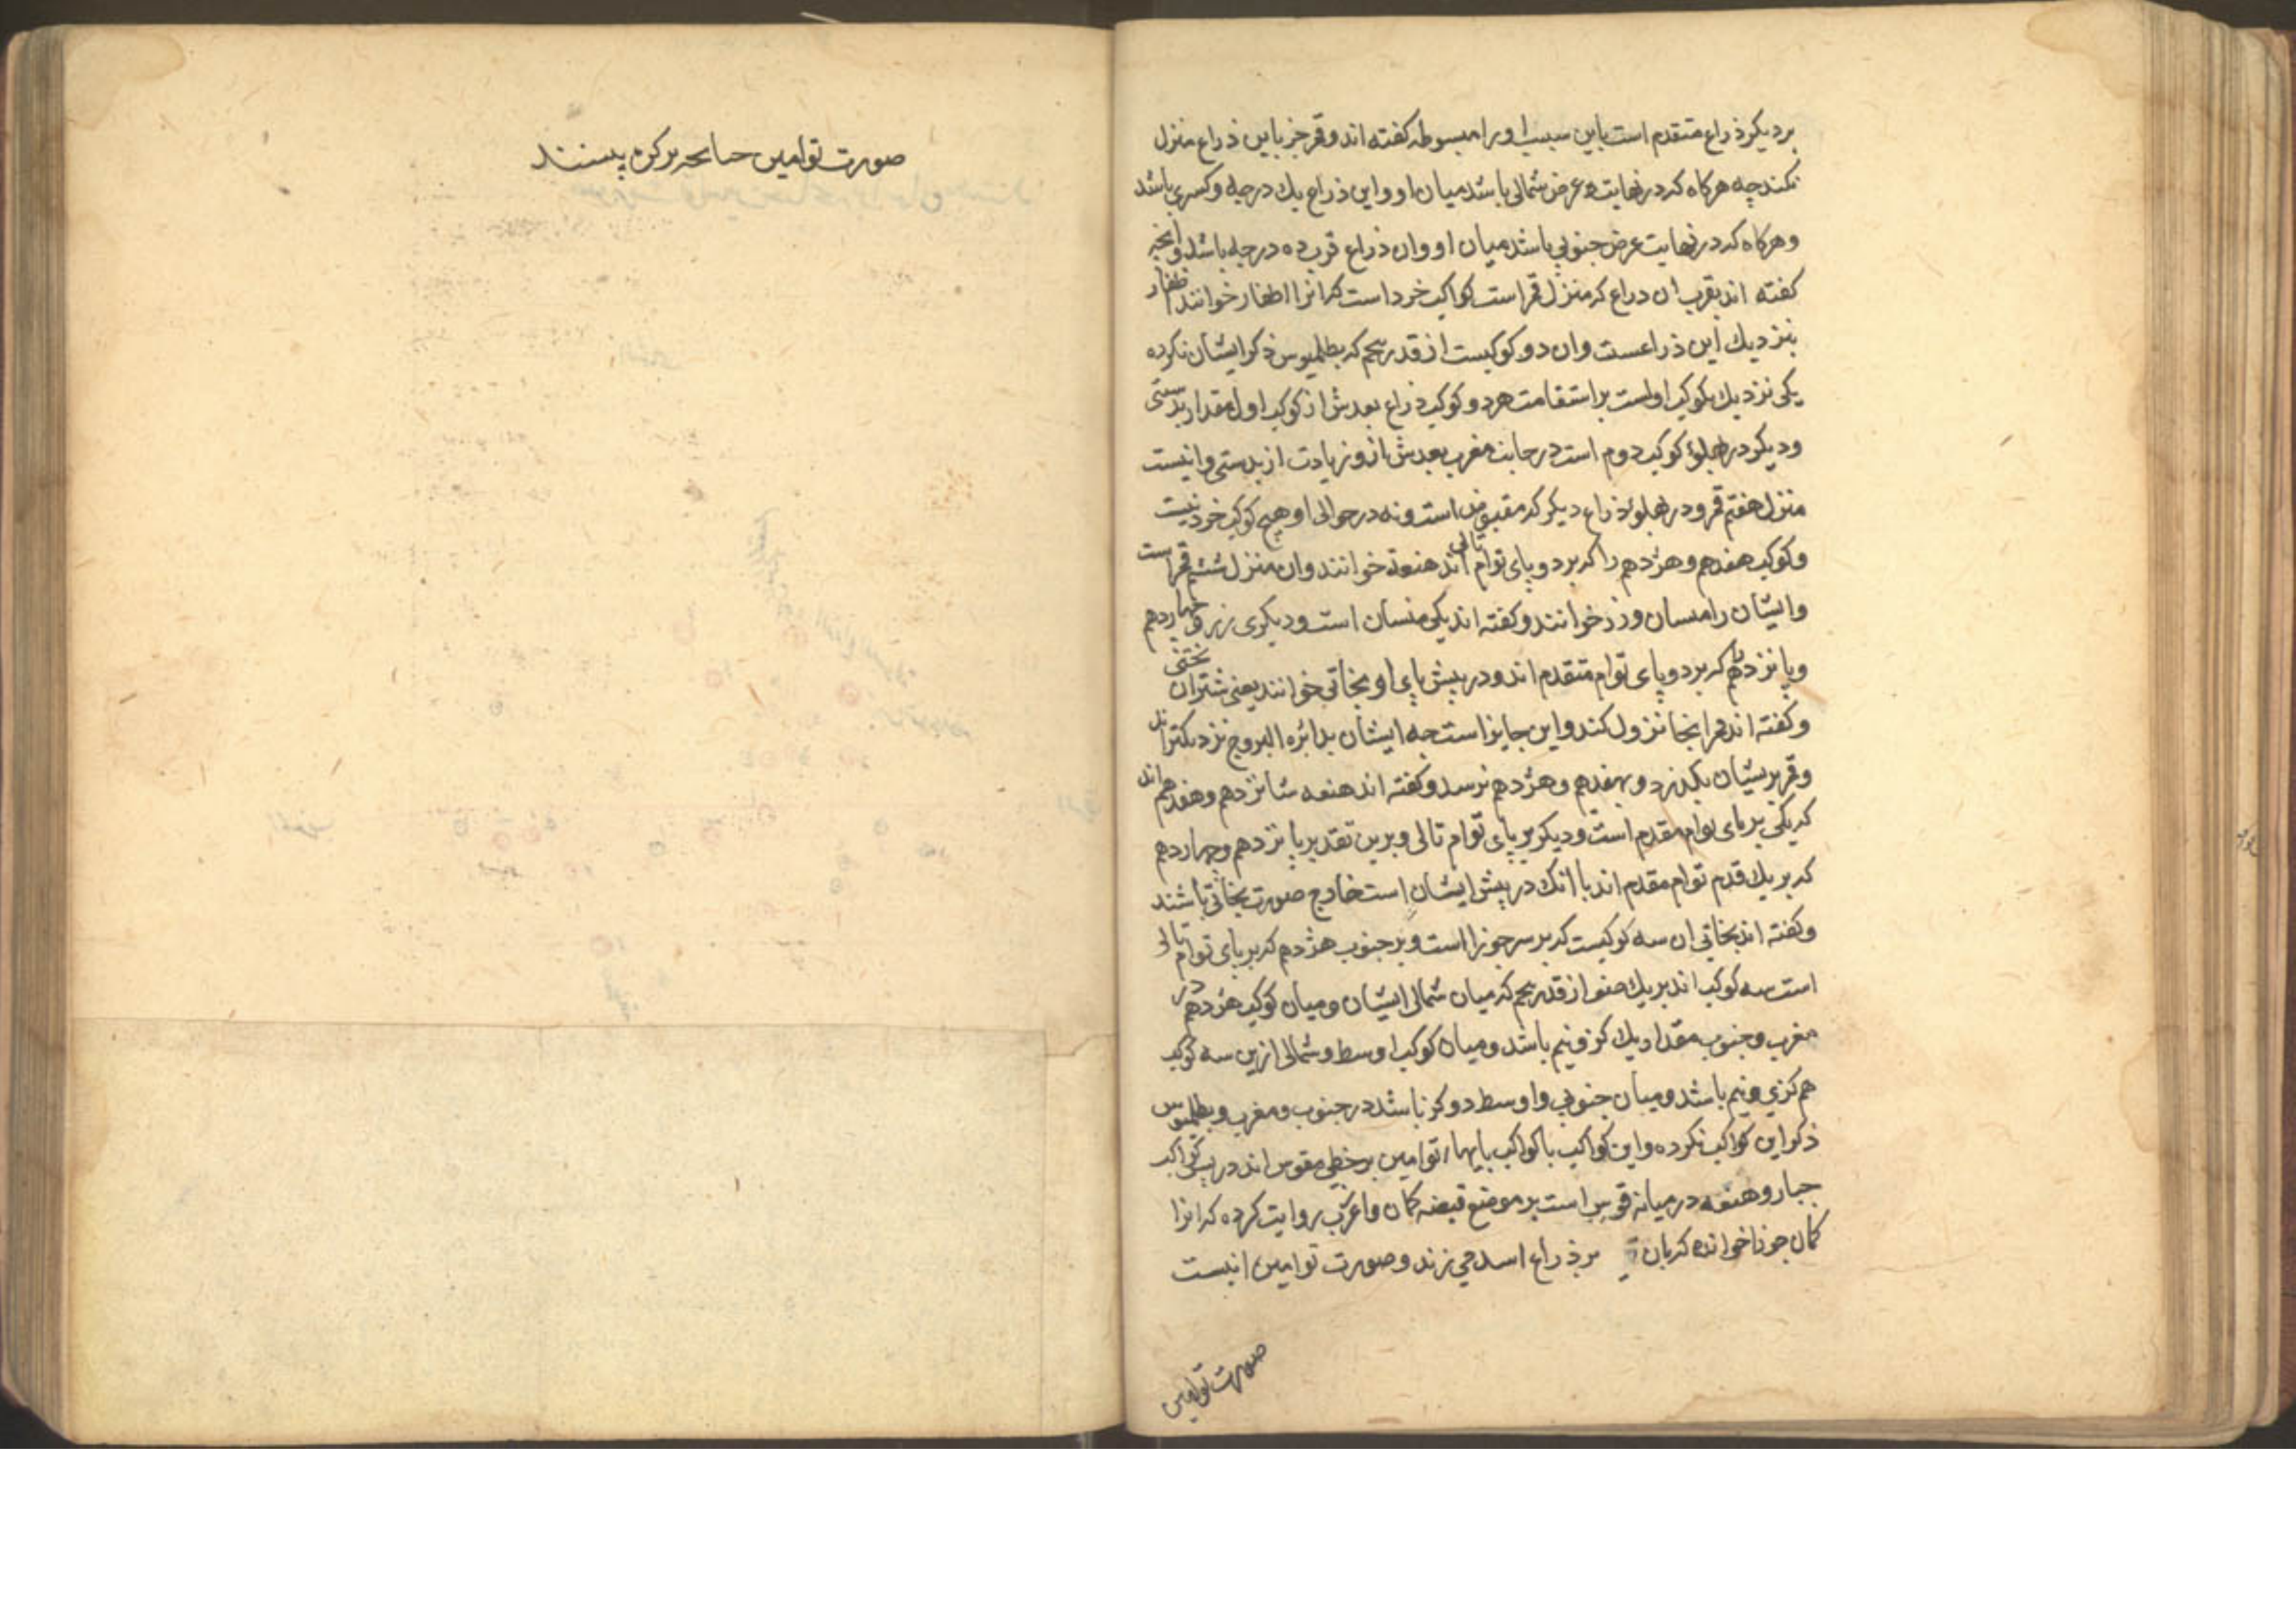 بر دیکر ذراع متقدم است باین سبب او را مبسوطه کفته اند و قمر جز باین ذراع منزل
نکند چه هرکاه که در نهایت عرض شمالی باشد میان او و این ذراع یك درجه و کسری باشد
و هرکاه که در نهایت عرض جنوبی باشد میان او و ان ذراع قرب ده درجه باشد و انچه
کفته اند بقرب ان ذراع که منزل قمر است کواکب خرد است که انرا اظفار خوانند اظفار
بنزدیك این ذراعست و ان دو کوکبست از قدر پنجم که بطلمیوس ذکر ایشان نکرده
یکی نزدیك بکوکب اولست بر استقامت هر دو کوکب ذراع بعدش از کوکب اول مقدار بدستی
و دیکر در پهلوء کوکب دوم است در جانب مغرب بعدش ازو زیادت از بدستی و اینست
منزل هفتم قمر و در پهلوء ذراع دیکر که مقبوض است و نه در حوالی او هیچ کوکب خرد نیست
و کوکب هفدهم و هژدهم را که بر دو پای توام تالی اند هنعه خوانند و ان منزل ششم قمر است
و ایشان را میسان و زر خوانند و کفته اند یکی میسان است و دیکری زر و چهاردهم
و پانزدهم که بر دو پای توام متقدم اند و در پیش پای او بخاتی خوانند یعنی شتران بختی
و کفته اند قمر اینجا نزول کند و این جایز است چه ایشان بدائره البروج نزدیکتر اند
و قمر بریشان بکذرد و بهفدهم و هژدهم نرسد و کفته اند هنعه شانزدهم و هفدهم اند
که یکی بر پای توام مقدم است و دیکر بر پای توام تالی و برین تقدیر پانزدهم و چهاردهم
که بر یك قدم توام مقدم اند با انك در پیش ایشان است خارج صورت بخاتی باشند
و کفته اند بخاتی ان سه کوکبست که بر سر جوزا است و بر جنوب هژدهم که بر پای توام تالی
است سه کوکب اند بر یك صف از قدر پنجم که میان شمالی ایشان و میان کوکب هژدهم در
مغرب و جنوب مقدار یك کز و نیم باشد و میان کوکب اوسط و شمالی ازین سه کوکب
هم کزی و نیم باشد و میان جنوبی و اوسط دو کز باشد در جنوب و مغرب و بطلمیوس
ذکر این کواکب نکرده و این کواکب با کواکب پایهاء توامین بر خطی مقوس اند در پس کواکب
جبار و هنعه در میانه قوس است بر موضع قبضه کمان و اعرب روایت کرده که انرا
کمان جوزا خوانده که بان بر ذراع اسد می زند و صورت توامین اینست
صورت توامین
صورت توامین چنانچه بر کره بینند